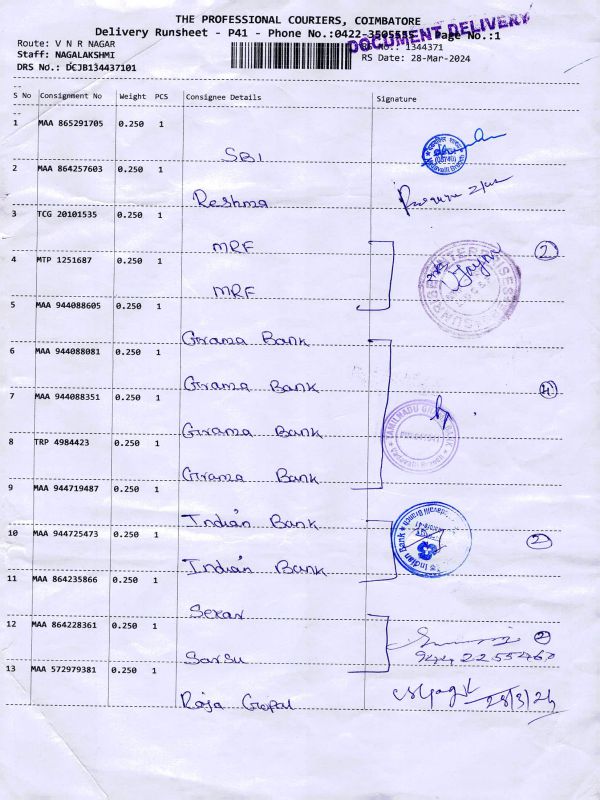 THE PROFESSIONAL COURIERS, COIMBATORE
Delivery Runsheet - P41 - Phone No.:0422-3505555 Page No.:1
DOCUMENT DELIVERY
Route: V N R NAGAR
1344371
Staff: NAGALAKSHMI
RS Date: 28-Mar-2024
DRS No.: DCJB134437101
S No Consignment No Weight PCS Consignee Details Signature
1 MAA 865291705 0.250 1
SBI
2 MAA 864257603 0.250 1
Reshma
3 TCG 20101535 0.250 1
MRF 2
4 MTP 1251687 0.250 1
MRF
5 MAA 944088605 0.250 1
Grama Bank
6 MAA 944088081 0.250 1
Grama Bank 4
7 MAA 944088351 0.250 1
Grama Bank
8 TRP 4984423 0.250 1
Grama Bank
9 MAA 944719487 0.250 1
Indian Bank
10 MAA 944725473 0.250 1 2
Indian Bank
Indian Bank
11 MAA 864235866 0.250 1
Sekar
12 MAA 864228361 0.250 1 2
Sarsu
13 MAA 572979381 0.250 1
Raja Gopal 28/3/24